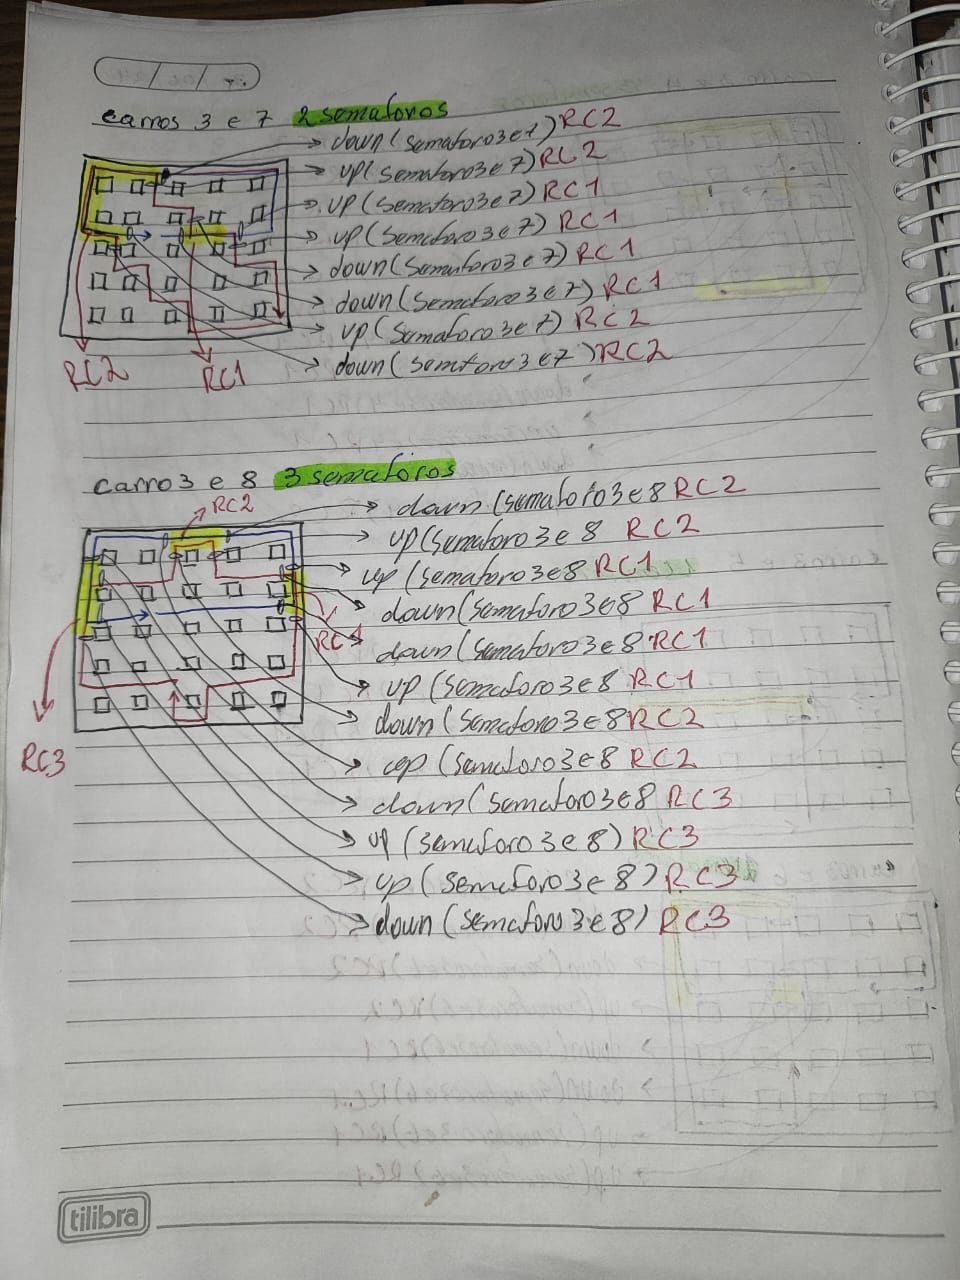 carros 3 e 7 2 semaforos
down(semaforo3e7)RC2
up(semaforo3e7)RC2
up(semaforo3e7)RC1
up(semaforo3e7)RC1
down(semaforo3e7)RC1
down(semaforo3e7)RC1
up(semaforo3e7)RC2
down(semaforo3e7)RC2
RC2
RC1
carro 3 e 8 3 semaforos
RC2
down(semaforo3e8 RC2
up(semaforo3e8 RC2
up(semaforo3e8 RC1
down(semaforo3e8 RC1
RC1
down(semaforo3e8 RC1
up(semaforo3e8 RC1
down(semaforo3e8 RC2
up(semaforo3e8 RC2
RC3
down(semaforo3e8 RC3
up(semaforo3e8)RC3
up(semaforo3e8)RC3
down(semaforo3e8)RC3
tilibra